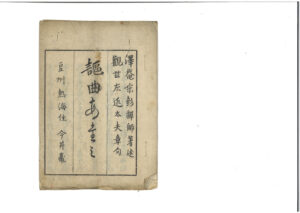 澤菴宗彭禪師著述
觀世左近太夫章句
謳曲あ
豆州熱海住 今井